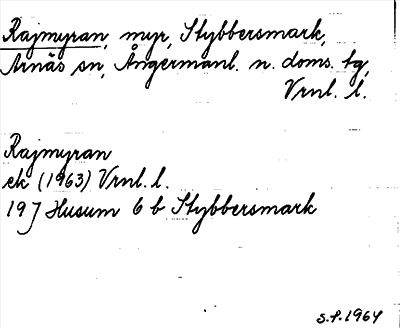 Rajmyran, myr, Stybbersmark,
Arnäs sn, Ångermanl. n. doms. tg,
Vrnl. l.
Rajmyran
ek (1963) Vrnl. l.
19 J Husum 6 b Stybbersmark
S.P. 1964